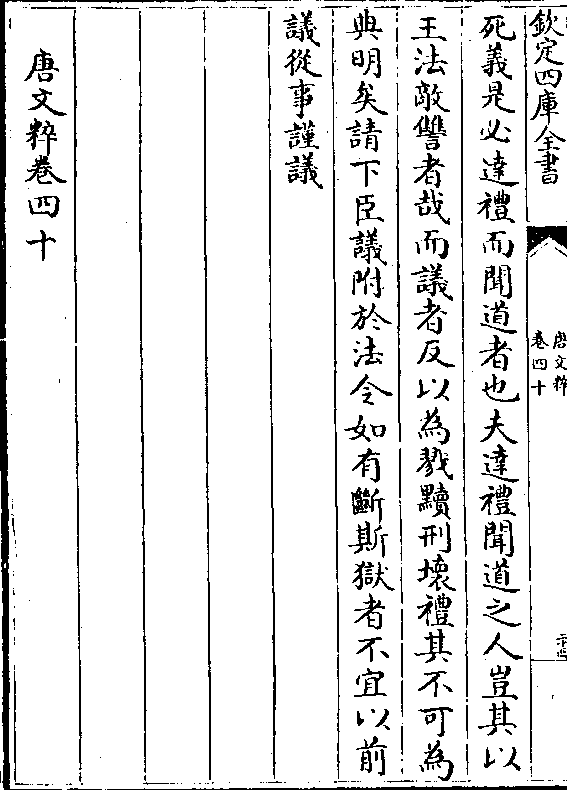 欽定四庫全書
唐文粹
卷四十
死義是必達禮而聞道者也夫達禮聞道之人豈其以
王法敵讐者哉而議者反以為戮黷刑壞禮其不可為
典明矣請下臣議附於法令如有斷斯獄者不宜以前
議從事謹議
唐文粹卷四十